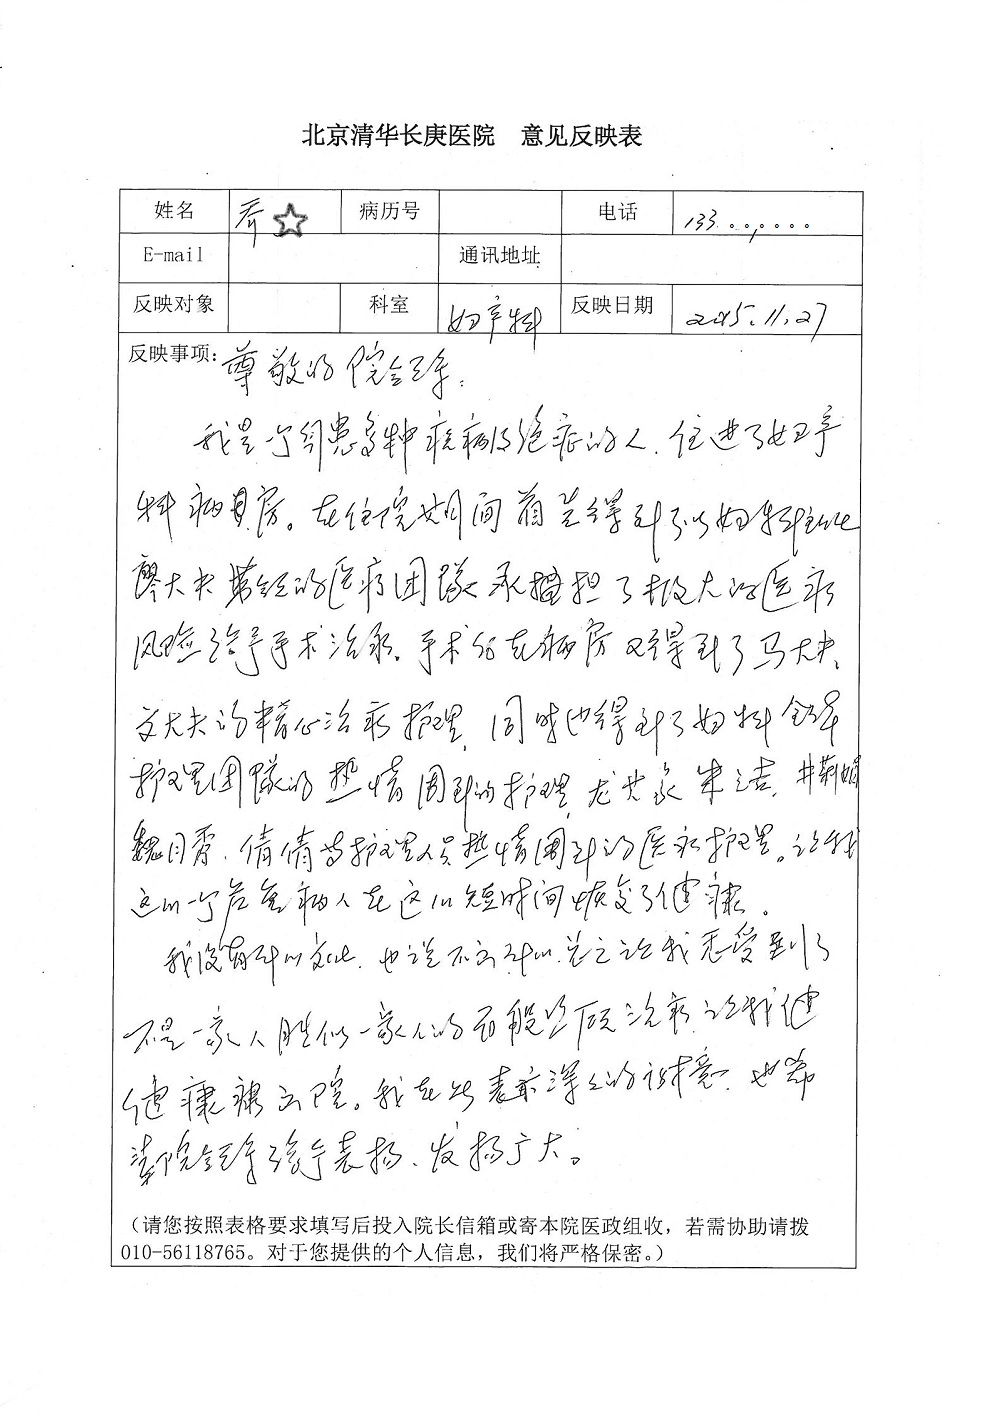 北京清华长庚医院 意见反映表
姓名 乔☆ 病历号 电话 133........
E-mail 通讯地址
反映对象 科室 妇产科 反映日期 2015.11.27
反映事项：尊敬的院领导：
我是一个身患多种疾病及绝症的人，住进了妇产
科病房。在住院期间首先得到了以妇科主任
廖大夫带领的医疗团队承担了极大的医疗
风险给予手术治疗。手术后在病房又得到了马大夫、
文大夫的精心治疗护理，同时也得到了妇科全体
护理团队的热情周到的护理，尤其
魏月香、倩倩等护理人员热情周到的医疗护理。让我
这么一个危重病人在这么短时间恢复了健康。
我没有什么文化，也说不出什么，总之让我感受到了
不是一家人胜似一家人的百般照顾治疗，让我健
健康康出院。我在此表示深深的谢意，也希
望院领导给予表扬、发扬广大。
（请您按照表格要求填写后投入院长信箱或寄本院医政组收，若需协助请拨
010-56118765。对于您提供的个人信息，我们将严格保密。）